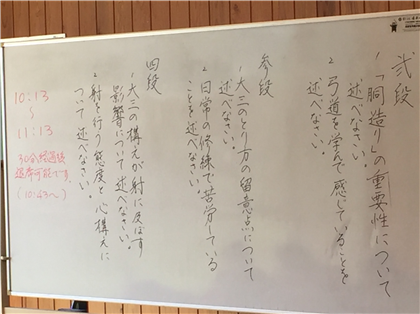 弐段
1「胴造り」の重要性について
述べなさい。
2 弓道を学んで感じていることを
述べなさい。
参段
1大三のとり方の留意点について
述べなさい。
2 日常の修練で苦労している
ことを述べなさい。
四段
1大三の構えが射に及ぼす
影響について述べなさい。
2射を行う態度と心構えに
ついて述べなさい。
10:13
〜
11:13
30分経過後
退席可能です。
(10:43〜)